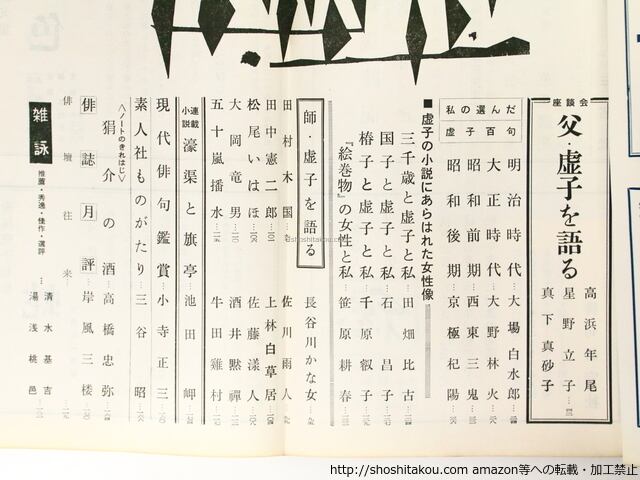 座談会
父・虚子を語る
高浜年尾
星野立子
真下真砂子
私の選んだ虚子百句
明治時代 大場白水郎
大正時代 大野林火
昭和前期 西東三鬼
昭和後期 京極杞陽
■虚子の小説にあらはれた女性像
三千歳と虚子と私 田畑比古
国子と虚子と私 石昌子
椿子と虚子と私 千原叡子
『絵巻物』の女性と私 笹原耕春
師・虚子を語る
長谷川かな女
田村木国 佐川雨人
田中憲二郎 上林白草居
松尾いはほ 佐藤漾人
大岡竜男 酒井黙禪
五十嵐播水 牛田雞村
連載小説 濠渠と旗亭 池田岬
現代俳句鑑賞 小寺正三
素人社ものがたり 三谷昭
〈ノートのきれはし〉
狷介の酒 高橋忠弥
俳誌月評 岸風三楼
俳壇往来
雑詠 推薦・秀逸・佳作・選評
清水基吉
湯浅桃邑
http://shoshitakou.com amazon等への転載・加工禁止